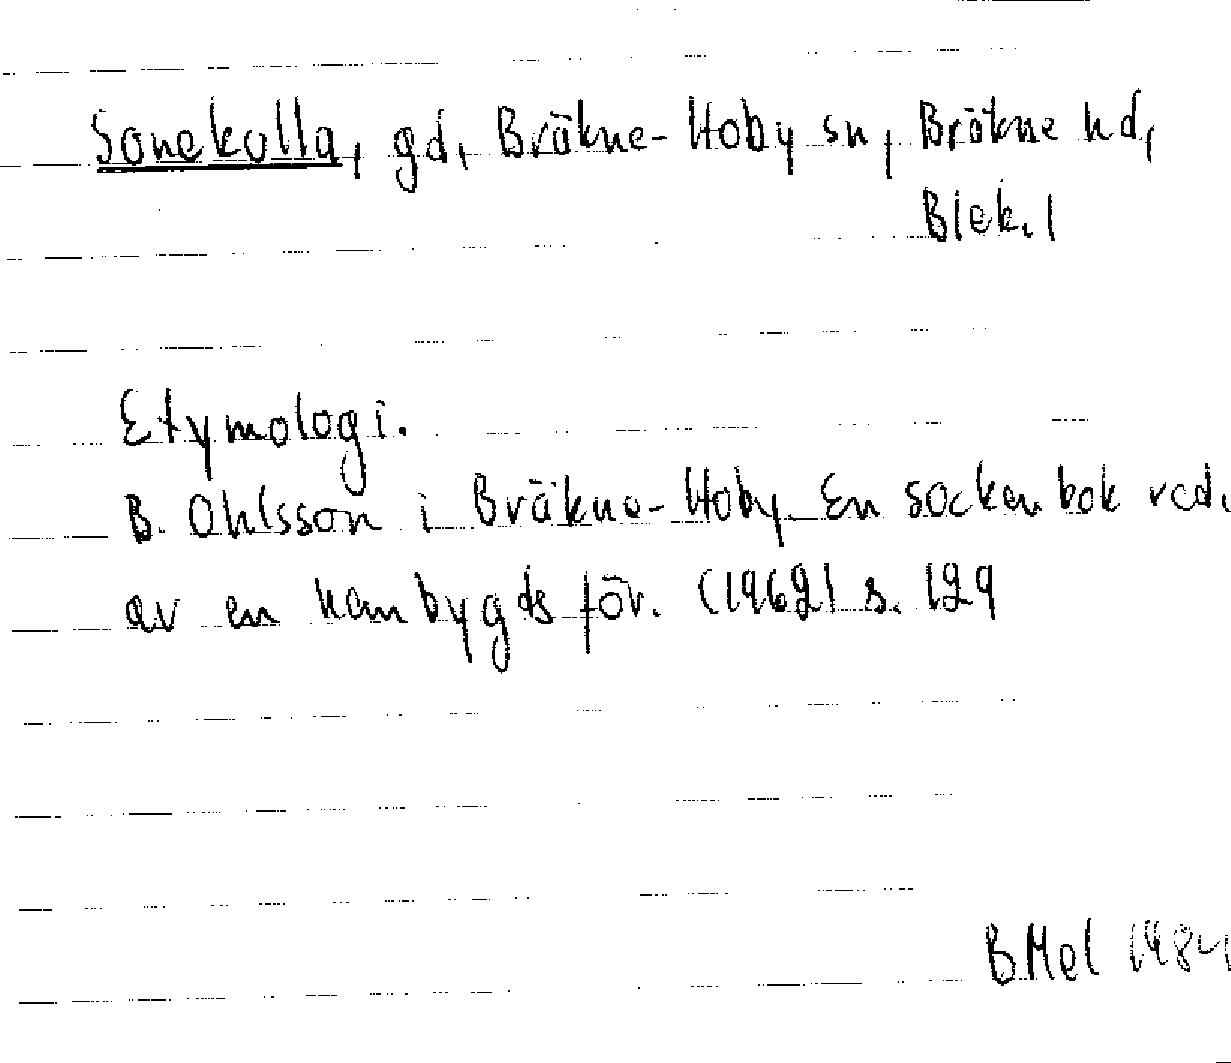 Sonekulla, gd, Bräkne-Hoby sn, Bräkne hd,
Blek. l
Etymologi.
B. Ohlsson i Bräkne-Hoby. En sockenbok red.
av en hembygdsför. (1962) s. 129
BMel 1984